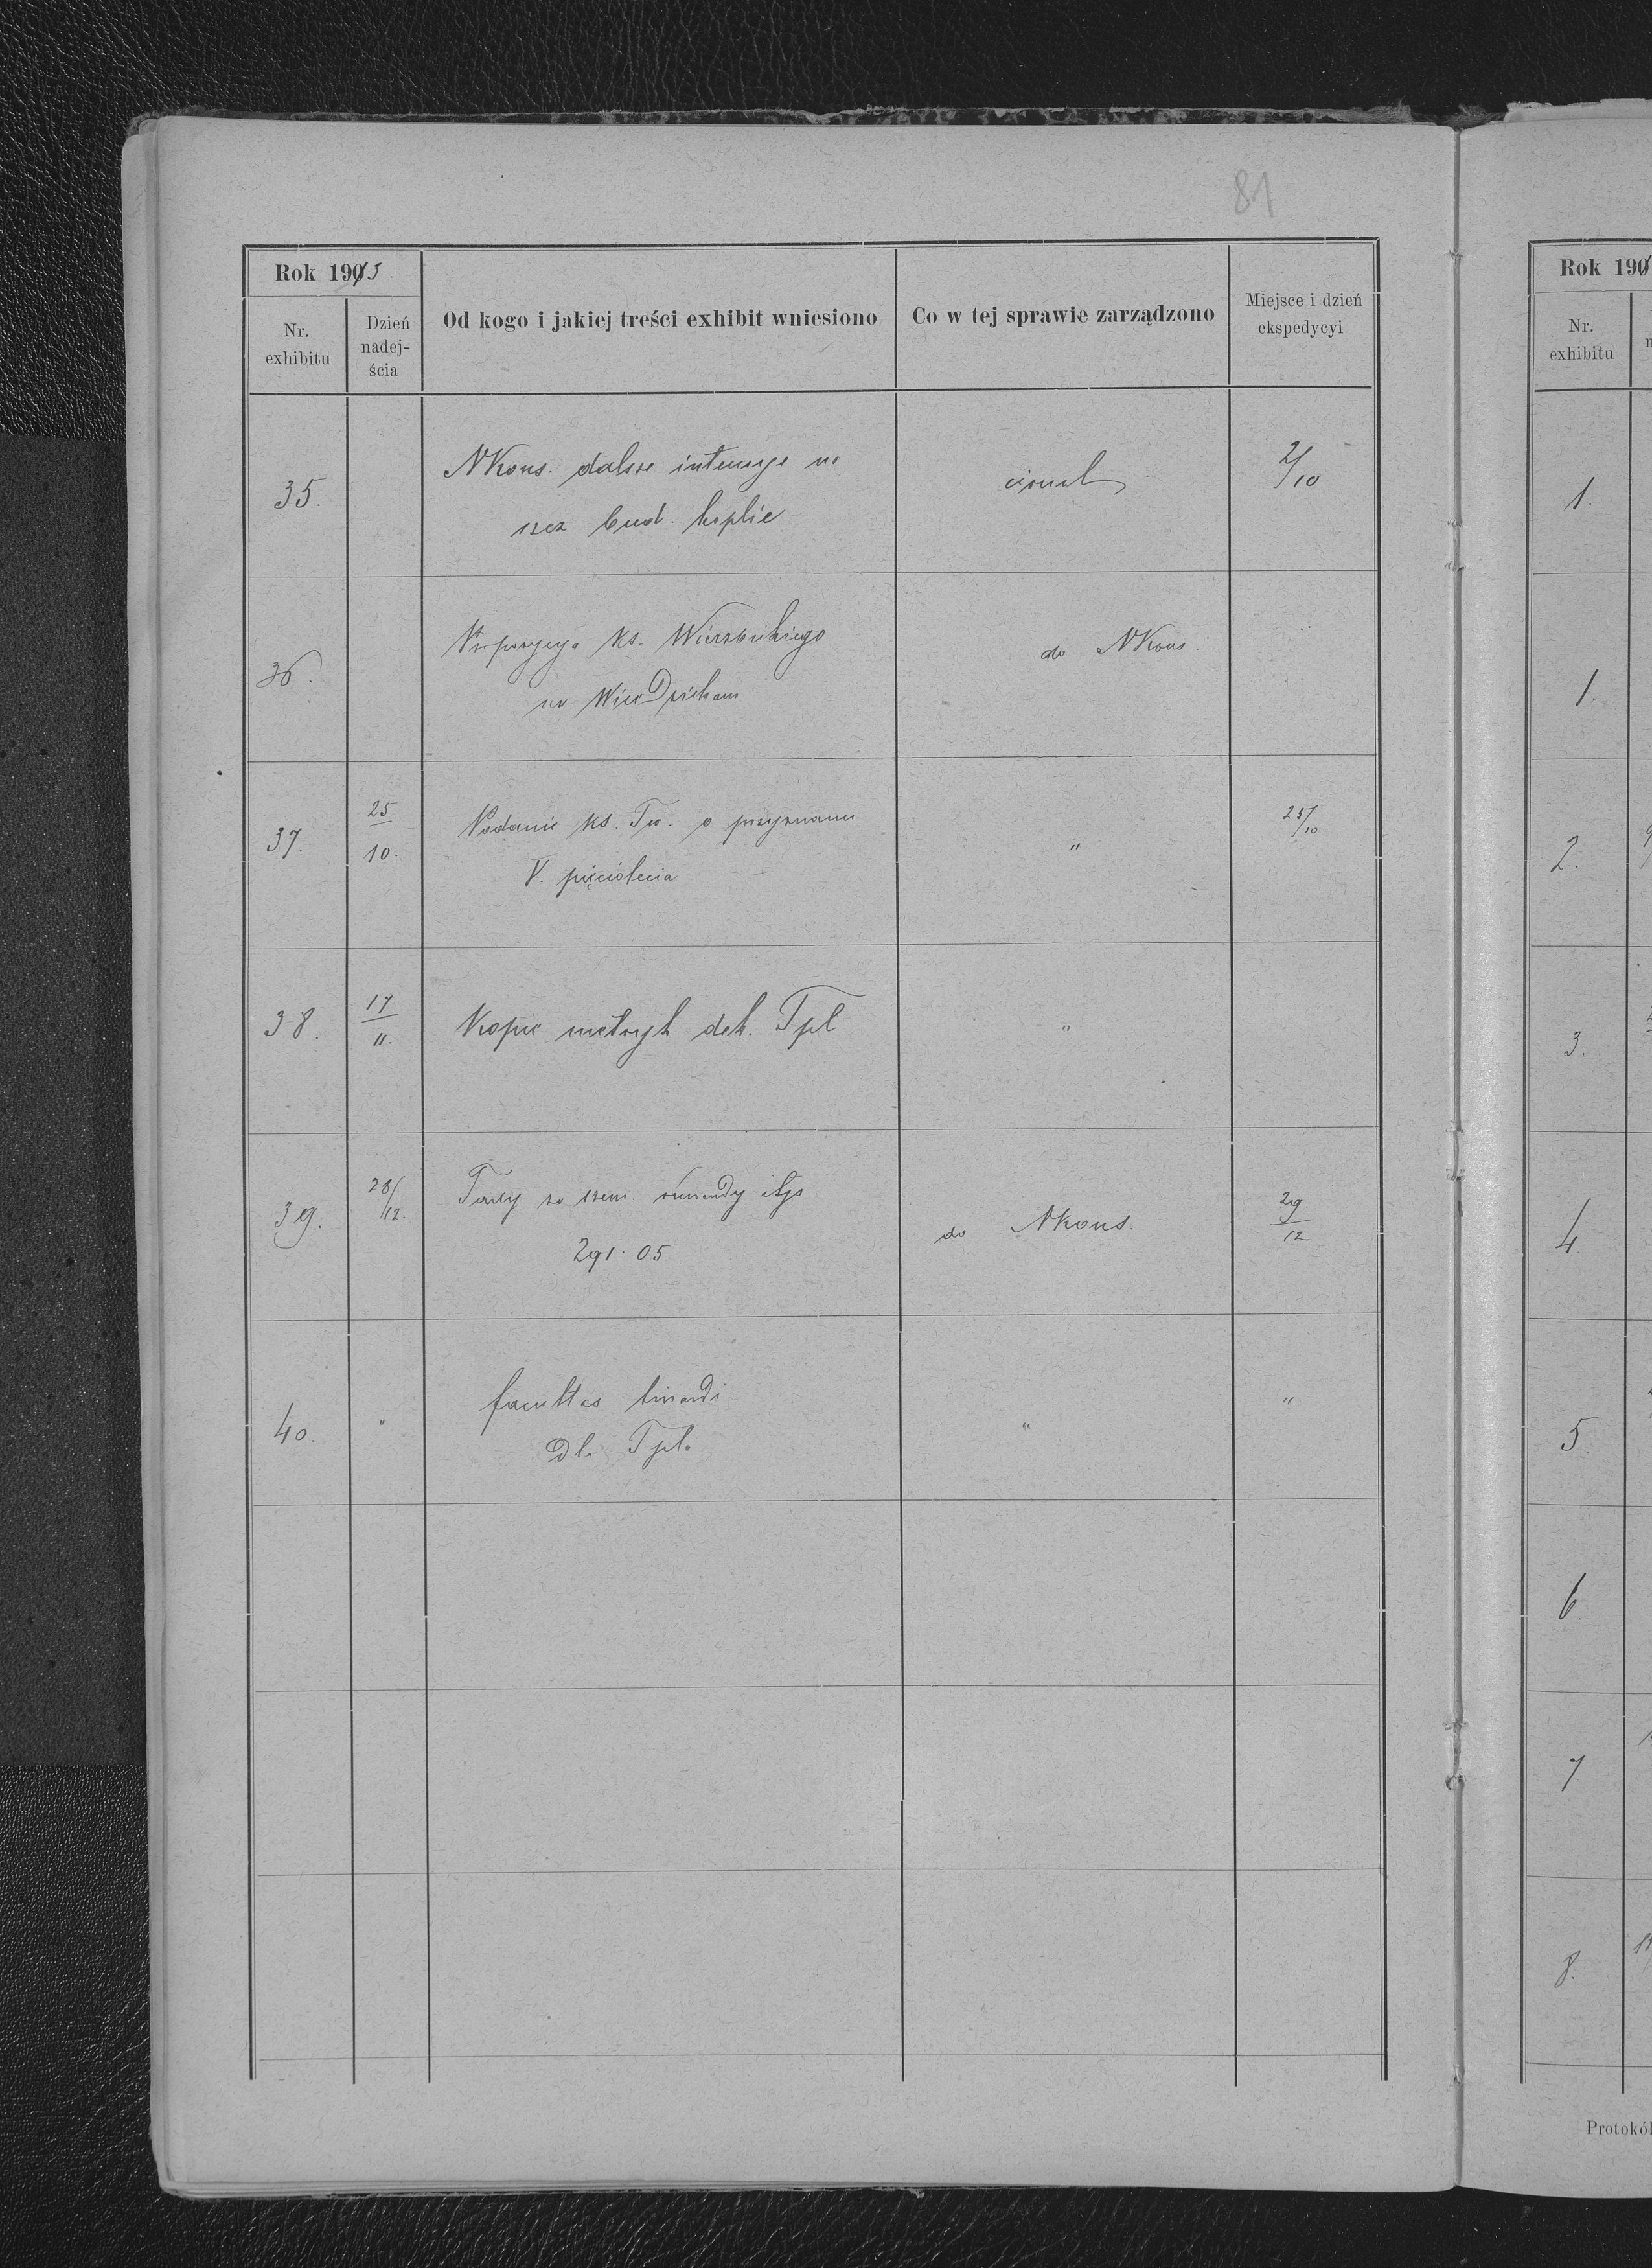 81
Rok 1913.
Nr.
exhibitu
Dzień
nadej-
ścia
Od kogo i jakiej treści exhibit wniesiono
Co w tej sprawie zarządzono
Miejsce i dzień
ekspedycyi
35.
NKons. dalsze
bud. kaplic
2/10
36.
Propozycya ks. Wierzbickiego
na
do NKons
37.
25
10.
Podanie ks. Tw. o przyznanie
V. pięciolecia
"
25/10
38.
17
11.
Kopie metryk dek. Tpl
"
39.
28/12.
Taxy za
291·05
do NKons.
29
12
40.
"
facultas binandi
Dl. Tpl.
"
"
Rok 190
Nr.
exhibitu
1.
1.
2.
3.
4
5
6.
7
8.
Protokół